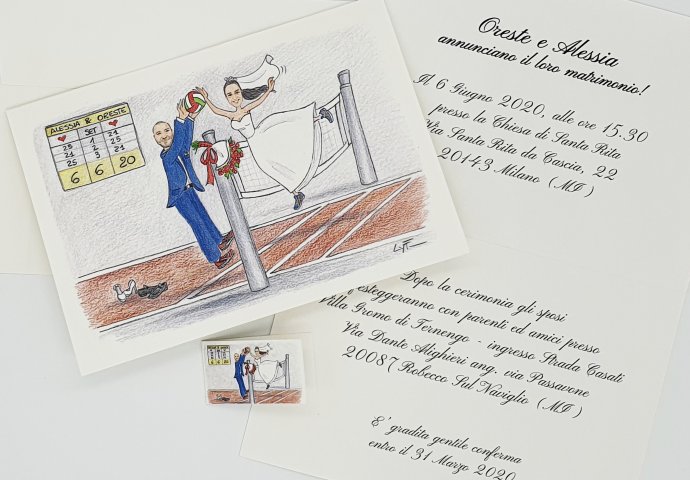 ALESSIA & ORESTE
SET
25 1 21
21 2 25
25 3 21
6 6 20
Oreste e Alessia
annunciano il loro matrimonio!
Il 6 Giugno 2020, alle ore 15.30
presso la Chiesa di Santa Rita
Via Santa Rita da Cascia, 22
20143 Milano (MI)
Dopo la cerimonia gli sposi
festeggeranno con parenti ed amici presso
Villa Gromo di Ternengo - ingresso Strada Casati
Via Dante Alighieri ang. via Passavone
20087 Robecco Sul Naviglio (MI)
E' gradita gentile conferma
entro il 31 Marzo 2020